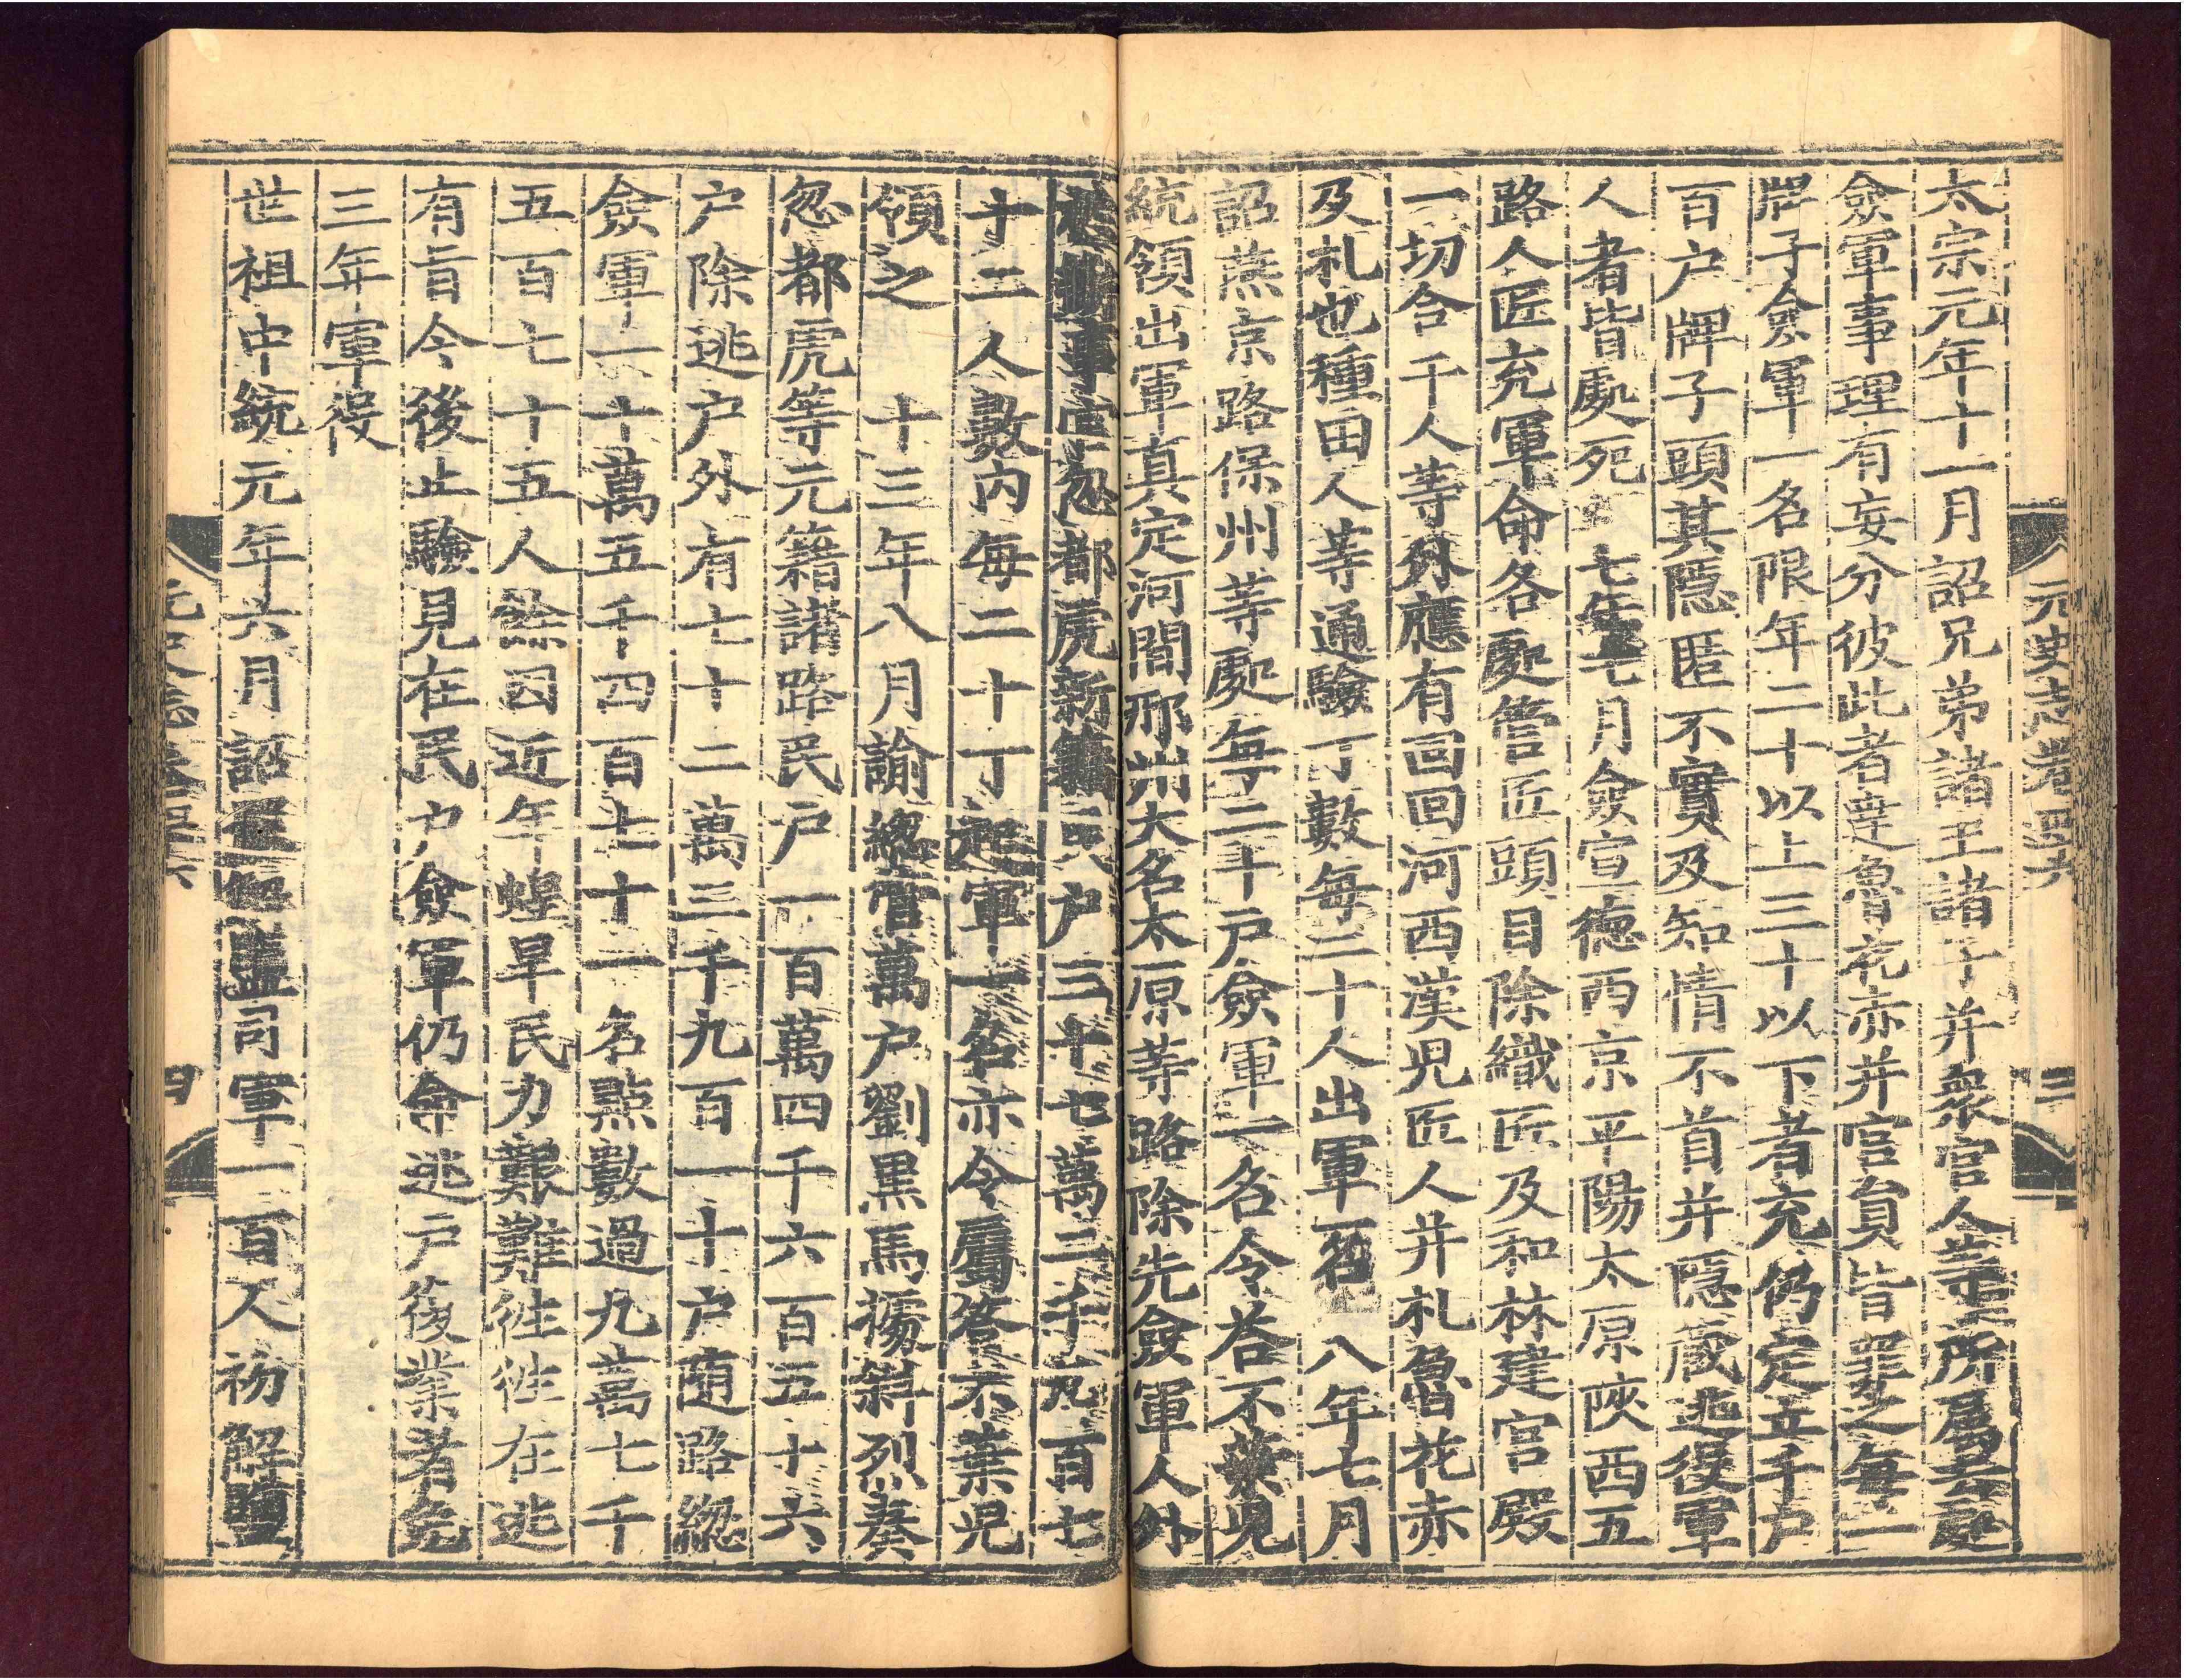 元史志卷四十六
三
太宗元年十一月詔兄弟諸王諸子并衆官人等所屬去處
僉軍事理有妄分彼此者達魯花赤并官員皆罪之每一
牌子僉軍一名限年二十以上三十以下者充仍定立千户
百户牌子頭其隱匿不實及知情不首并隱藏逃役軍
人者皆處死 七年七月僉宣德西京平陽太原陝西五
路人匠充軍命各處管匠頭目除織匠及和林建宮殿
一切合干人等外應有回回河西漢兒匠人并札魯花赤
及札也種田人等通驗丁數每二十人出軍一名 八年七月
詔燕京路保州等處每二十户僉軍一名令荅不葉兒
統領出軍真定河間邢州大名太原等路除先僉軍人外
於斷事官忽都虎新籍民户三十七萬二千九百七
十二人數内每二十丁起軍一名亦令屬荅不葉兒
領之 十三年八月諭總管萬户劉黑馬據斜烈奏
忽都虎等元籍諸路民户一百萬四千六百五十六
户除逃户外有七十二萬三千九百一十户随路總
僉軍一十萬五千四百七十一名點數過九萬七千
五百七十五人餘因近年蝗旱民力艱難往往在逃
有旨今後止驗見在民户僉軍仍命逃户復業者免
三年軍役
世祖中統元年六月詔罷解鹽司軍一百人初解鹽
四